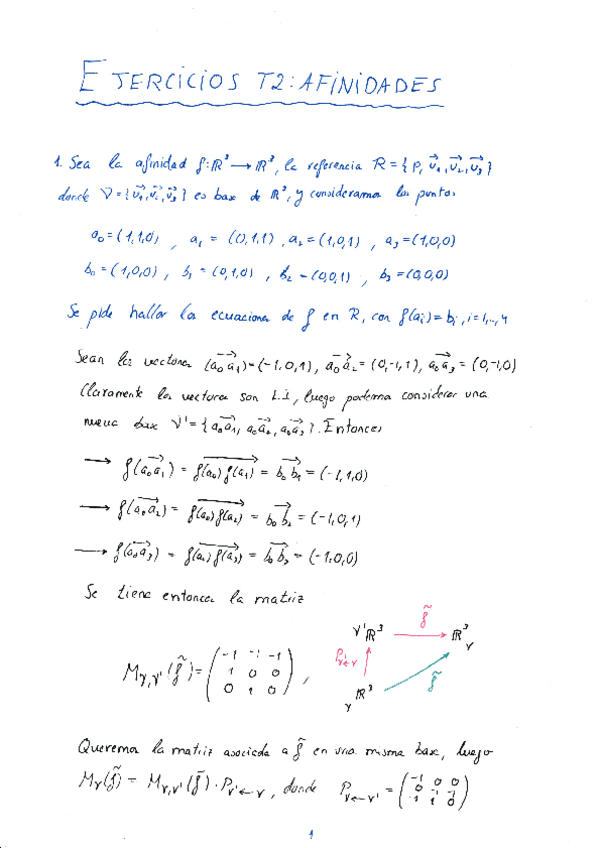 EJERCICIOS T2: AFINIDADES
1. Sea la afinidad f: ℝ³ → ℝ³, la referencia R = {P, v₁, v₂, v₃}
donde V = {v₁, v₂, v₃} es base de ℝ³, y consideramos los puntos
a₀ = (1,1,0) , a₁ = (0,1,1) , a₂ = (1,0,1) , a₃ = (1,0,0)
b₀ = (1,0,0) , b₁ = (0,1,0) , b₂ = (0,0,1) , b₃ = (0,0,0)
Se pide hallar las ecuaciones de f en R, con f(aᵢ) = bᵢ, i=1,..,4
Sean los vectores (a₀a₁) = (-1,0,1), a₀a₂ = (0,-1,1), a₀a₃ = (0,-1,0)
Claramente los vectores son L.I, luego podemos considerar una
nueva base V' = {a₀a₁, a₀a₂, a₀a₃}. Entonces
→ f(a₀a₁) = f(a₀)f(a₁) = b₀b₁ = (-1,1,0)
→ f(a₀a₂) = f(a₀)f(a₂) = b₀b₂ = (-1,0,1)
→ f(a₀a₃) = f(a₀)f(a₃) = b₀b₃ = (-1,0,0)
Se tiene entonces la matriz
V' ℝ³ f̃ → ℝ³ V
P V'←V
V ℝ³ f̃
M V,V' (f̃) = ( -1 -1 -1
1 0 0
0 1 0 ) ,
Queremos la matriz asociada a f̃ en una misma base, luego
M V (f̃) = M V,V' (f̃) · P V'←V , donde P V←V' = ( -1 0 0
0 -1 -1
1 1 0 )
1